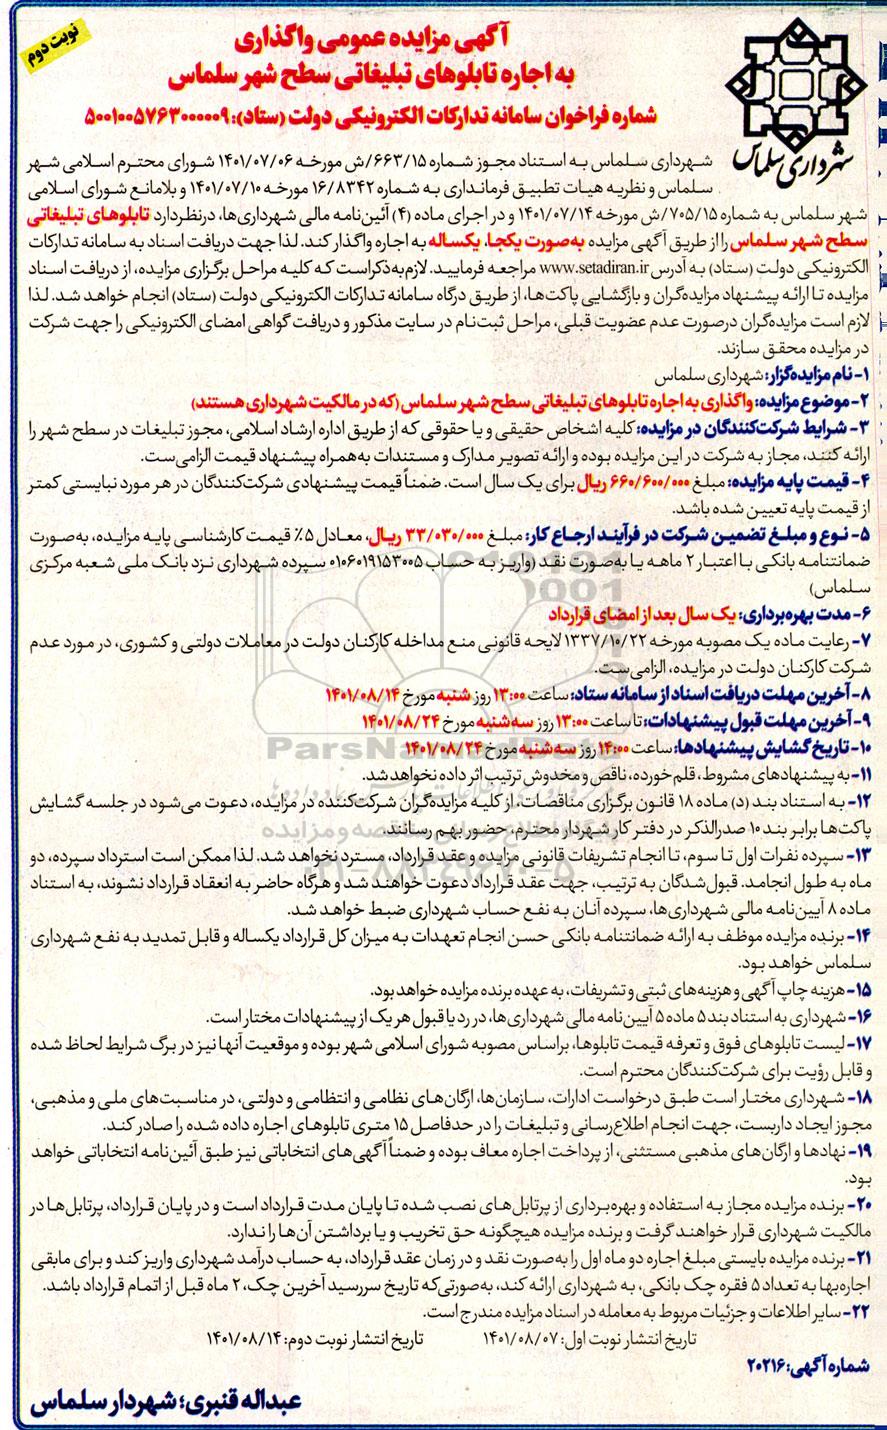 نوبت دوم
آگهی مزایده عمومی واگذاری
به اجاره تابلوهای تبلیغاتی سطح شهر سلماس
شماره فراخوان سامانه تدارکات الکترونیکی دولت (ستاد): ۵۰۰۱۰۰۵۷۶۳۰۰۰۰۰۹
شهرداری سلماس
شهرداری سلماس به استناد مجوز شماره ۶۶۳/۱۵/ش مورخه ۱۴۰۱/۰۷/۰۶ شورای محترم اسلامی شهر
سلماس و نظریه هیات تطبیق فرمانداری به شماره ۱۶/۸۳۴۲ مورخه ۱۴۰۱/۰۷/۱۰ و بلامانع شورای اسلامی
شهر سلماس به شماره ۷۰۵/۱۵/ش مورخه ۱۴۰۱/۰۷/۱۴ و در اجرای ماده (۴) آئین‌نامه مالی شهرداری‌ها، درنظردارد تابلوهای تبلیغاتی
سطح شهر سلماس را از طریق آگهی مزایده به‌صورت یکجا، یکساله به اجاره واگذار کند. لذا جهت دریافت اسناد به سامانه تدارکات
الکترونیکی دولت (ستاد) به آدرس www.setadiran.ir مراجعه فرمایید. لازم به‌ذکر است که کلیه مراحل برگزاری مزایده، از دریافت اسناد
مزایده تا ارائه پیشنهاد مزایده‌گران و بازگشایی پاکت‌ها، از طریق درگاه سامانه تدارکات الکترونیکی دولت (ستاد) انجام خواهد شد. لذا
لازم است مزایده‌گران درصورت عدم عضویت قبلی، مراحل ثبت‌نام در سایت مذکور و دریافت گواهی امضای الکترونیکی را جهت شرکت
در مزایده محقق سازند.
۱- نام مزایده‌گزار: شهرداری سلماس
۲- موضوع مزایده: واگذاری به اجاره تابلوهای تبلیغاتی سطح شهر سلماس (که در مالکیت شهرداری هستند)
۳- شرایط شرکت‌کنندگان در مزایده: کلیه اشخاص حقیقی و یا حقوقی که از طریق اداره ارشاد اسلامی، مجوز تبلیغات در سطح شهر را
ارائه کنند، مجاز به شرکت در این مزایده بوده و ارائه تصویر مدارک و مستندات به‌همراه پیشنهاد قیمت الزامی‌ست.
۴- قیمت پایه مزایده: مبلغ ۶۶۰/۶۰۰/۰۰۰ ریال برای یک سال است. ضمناً قیمت پیشنهادی شرکت‌کنندگان در هر مورد نبایستی کمتر
از قیمت پایه تعیین شده باشد.
۵- نوع و مبلغ تضمین شرکت در فرآیند ارجاع کار: مبلغ ۳۳/۰۳۰/۰۰۰ ریال، معادل ۵٪ قیمت کارشناسی پایه مزایده، به‌صورت
ضمانتنامه بانکی با اعتبار ۲ ماهه یا به‌صورت نقد (واریز به حساب ۰۱۰۶۰۱۹۱۵۳۰۰۵ سپرده شهرداری نزد بانک ملی شعبه مرکزی
سلماس)
۶- مدت بهره‌برداری: یک سال بعد از امضای قرارداد
۷- رعایت ماده یک مصوبه مورخه ۱۳۳۷/۱۰/۲۲ لایحه قانونی منع مداخله کارکنان دولت در معاملات دولتی و کشوری، در مورد عدم
شرکت کارکنان دولت در مزایده، الزامی‌ست.
۸- آخرین مهلت دریافت اسناد از سامانه ستاد: ساعت ۱۳:۰۰ روز شنبه مورخ ۱۴۰۱/۰۸/۱۴
۹- آخرین مهلت قبول پیشنهادات: تا ساعت ۱۳:۰۰ روز سه‌شنبه مورخ ۱۴۰۱/۰۸/۲۴
۱۰- تاریخ گشایش پیشنهادها: ساعت ۱۴:۰۰ روز سه‌شنبه مورخ ۱۴۰۱/۰۸/۲۴
۱۱- به پیشنهادهای مشروط، قلم خورده، ناقص و مخدوش ترتیب اثر داده نخواهد شد.
۱۲- به استناد بند (د) ماده ۱۸ قانون برگزاری مناقصات، از کلیه مزایده‌گران شرکت‌کننده در مزایده، دعوت می‌شود در جلسه گشایش
پاکت‌ها برابر بند ۱۰ صدرالذکر در دفتر کار شهردار محترم، حضور بهم رسانند.
۱۳- سپرده نفرات اول تا سوم، تا انجام تشریفات قانونی مزایده و عقد قرارداد، مسترد نخواهد شد. لذا ممکن است استرداد سپرده، دو
ماه به طول انجامد. قبول‌شدگان به ترتیب، جهت عقد قرارداد دعوت خواهند شد و هرگاه حاضر به انعقاد قرارداد نشوند، به استناد
ماده ۸ آیین‌نامه مالی شهرداری‌ها، سپرده آنان به نفع حساب شهرداری ضبط خواهد شد.
۱۴- برنده مزایده موظف به ارائه ضمانتنامه بانکی حسن انجام تعهدات به میزان کل قرارداد یکساله و قابل تمدید به نفع شهرداری
سلماس خواهد بود.
۱۵- هزینه چاپ آگهی و هزینه‌های ثبتی و تشریفات، به عهده برنده مزایده خواهد بود.
۱۶- شهرداری به استناد بند ۵ ماده ۵ آیین‌نامه مالی شهرداری‌ها، در رد یا قبول هر یک از پیشنهادات مختار است.
۱۷- لیست تابلوهای فوق و تعرفه قیمت تابلوها، براساس مصوبه شورای اسلامی شهر بوده و موقعیت آنها نیز در برگ شرایط لحاظ شده
و قابل رؤیت برای شرکت‌کنندگان محترم است.
۱۸- شهرداری مختار است طبق درخواست ادارات، سازمان‌ها، ارگان‌های نظامی و انتظامی و دولتی، در مناسبت‌های ملی و مذهبی،
مجوز ایجاد داربست، جهت انجام اطلاع‌رسانی و تبلیغات را در حدفاصل ۱۵ متری تابلوهای اجاره داده شده را صادر کند.
۱۹- نهادها و ارگان‌های مذهبی مستثنی، از پرداخت اجاره معاف بوده و ضمناً آگهی‌های انتخاباتی نیز طبق آئین‌نامه انتخاباتی خواهد
بود.
۲۰- برنده مزایده مجاز به استفاده و بهره‌برداری از پرتابل‌های نصب شده تا پایان مدت قرارداد است و در پایان قرارداد، پرتابل‌ها در
مالکیت شهرداری قرار خواهند گرفت و برنده مزایده هیچگونه حق تخریب و یا برداشتن آن‌ها را ندارد.
۲۱- برنده مزایده بایستی مبلغ اجاره دو ماه اول را به‌صورت نقد و در زمان عقد قرارداد، به حساب درآمد شهرداری واریز کند و برای مابقی
اجاره‌بها به تعداد ۵ فقره چک بانکی، به شهرداری ارائه کند، به‌صورتی‌که تاریخ سررسید آخرین چک، ۲ ماه قبل از اتمام قرارداد باشد.
۲۲- سایر اطلاعات و جزئیات مربوط به معامله در اسناد مزایده مندرج است.
تاریخ انتشار نوبت اول: ۱۴۰۱/۰۸/۰۷ تاریخ انتشار نوبت دوم: ۱۴۰۱/۰۸/۱۴
شماره آگهی: ۲۰۲۱۶
عبداله قنبری؛ شهردار سلماس